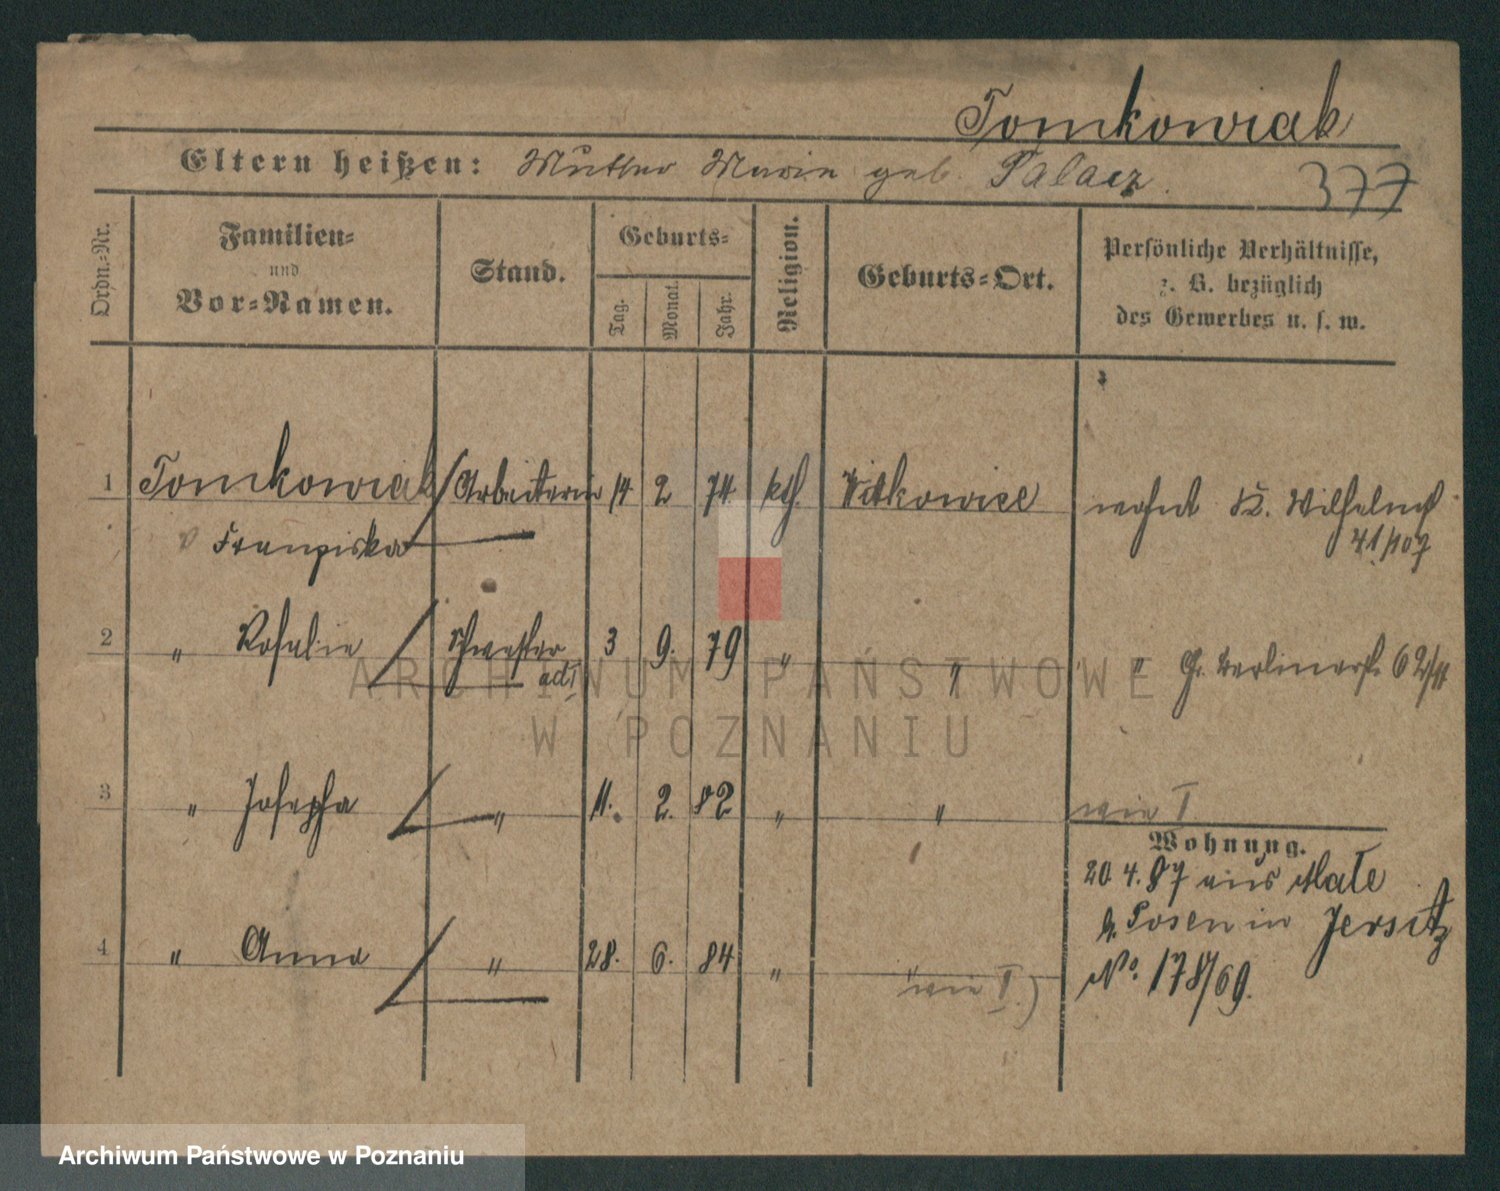 Tomkowiak
Eltern heißen: Mutter Marie geb. Palacz.
377
Ordn.-Nr.
Familien-
und
Vor-Namen.
Stand.
Geburts-
Tag.
Monat.
Jahr.
Religion.
Geburts-Ort.
Persönliche Verhältnisse,
z. B. bezüglich
des Gewerbes u. s. w.
1 Tomkowiak Arbeiterin 14 2 74. kth. Witkowice wohnt St. Wilhelmst
Franziska 41/107
2 " Rosalie Schwester 3 9. 79 " " " Gr. Berlinerst. 62/11
ad I
3 " Josepha " 11. 2. 82 " " wie I
Wohnung.
20 4. 87 aus
b. Posen in Jersitz
4 " Anna " 28. 6. 84 " " No. 178/69.
wie I.)
ARCHIWUM PAŃSTWOWE
W POZNANIU
Archiwum Państwowe w Poznaniu